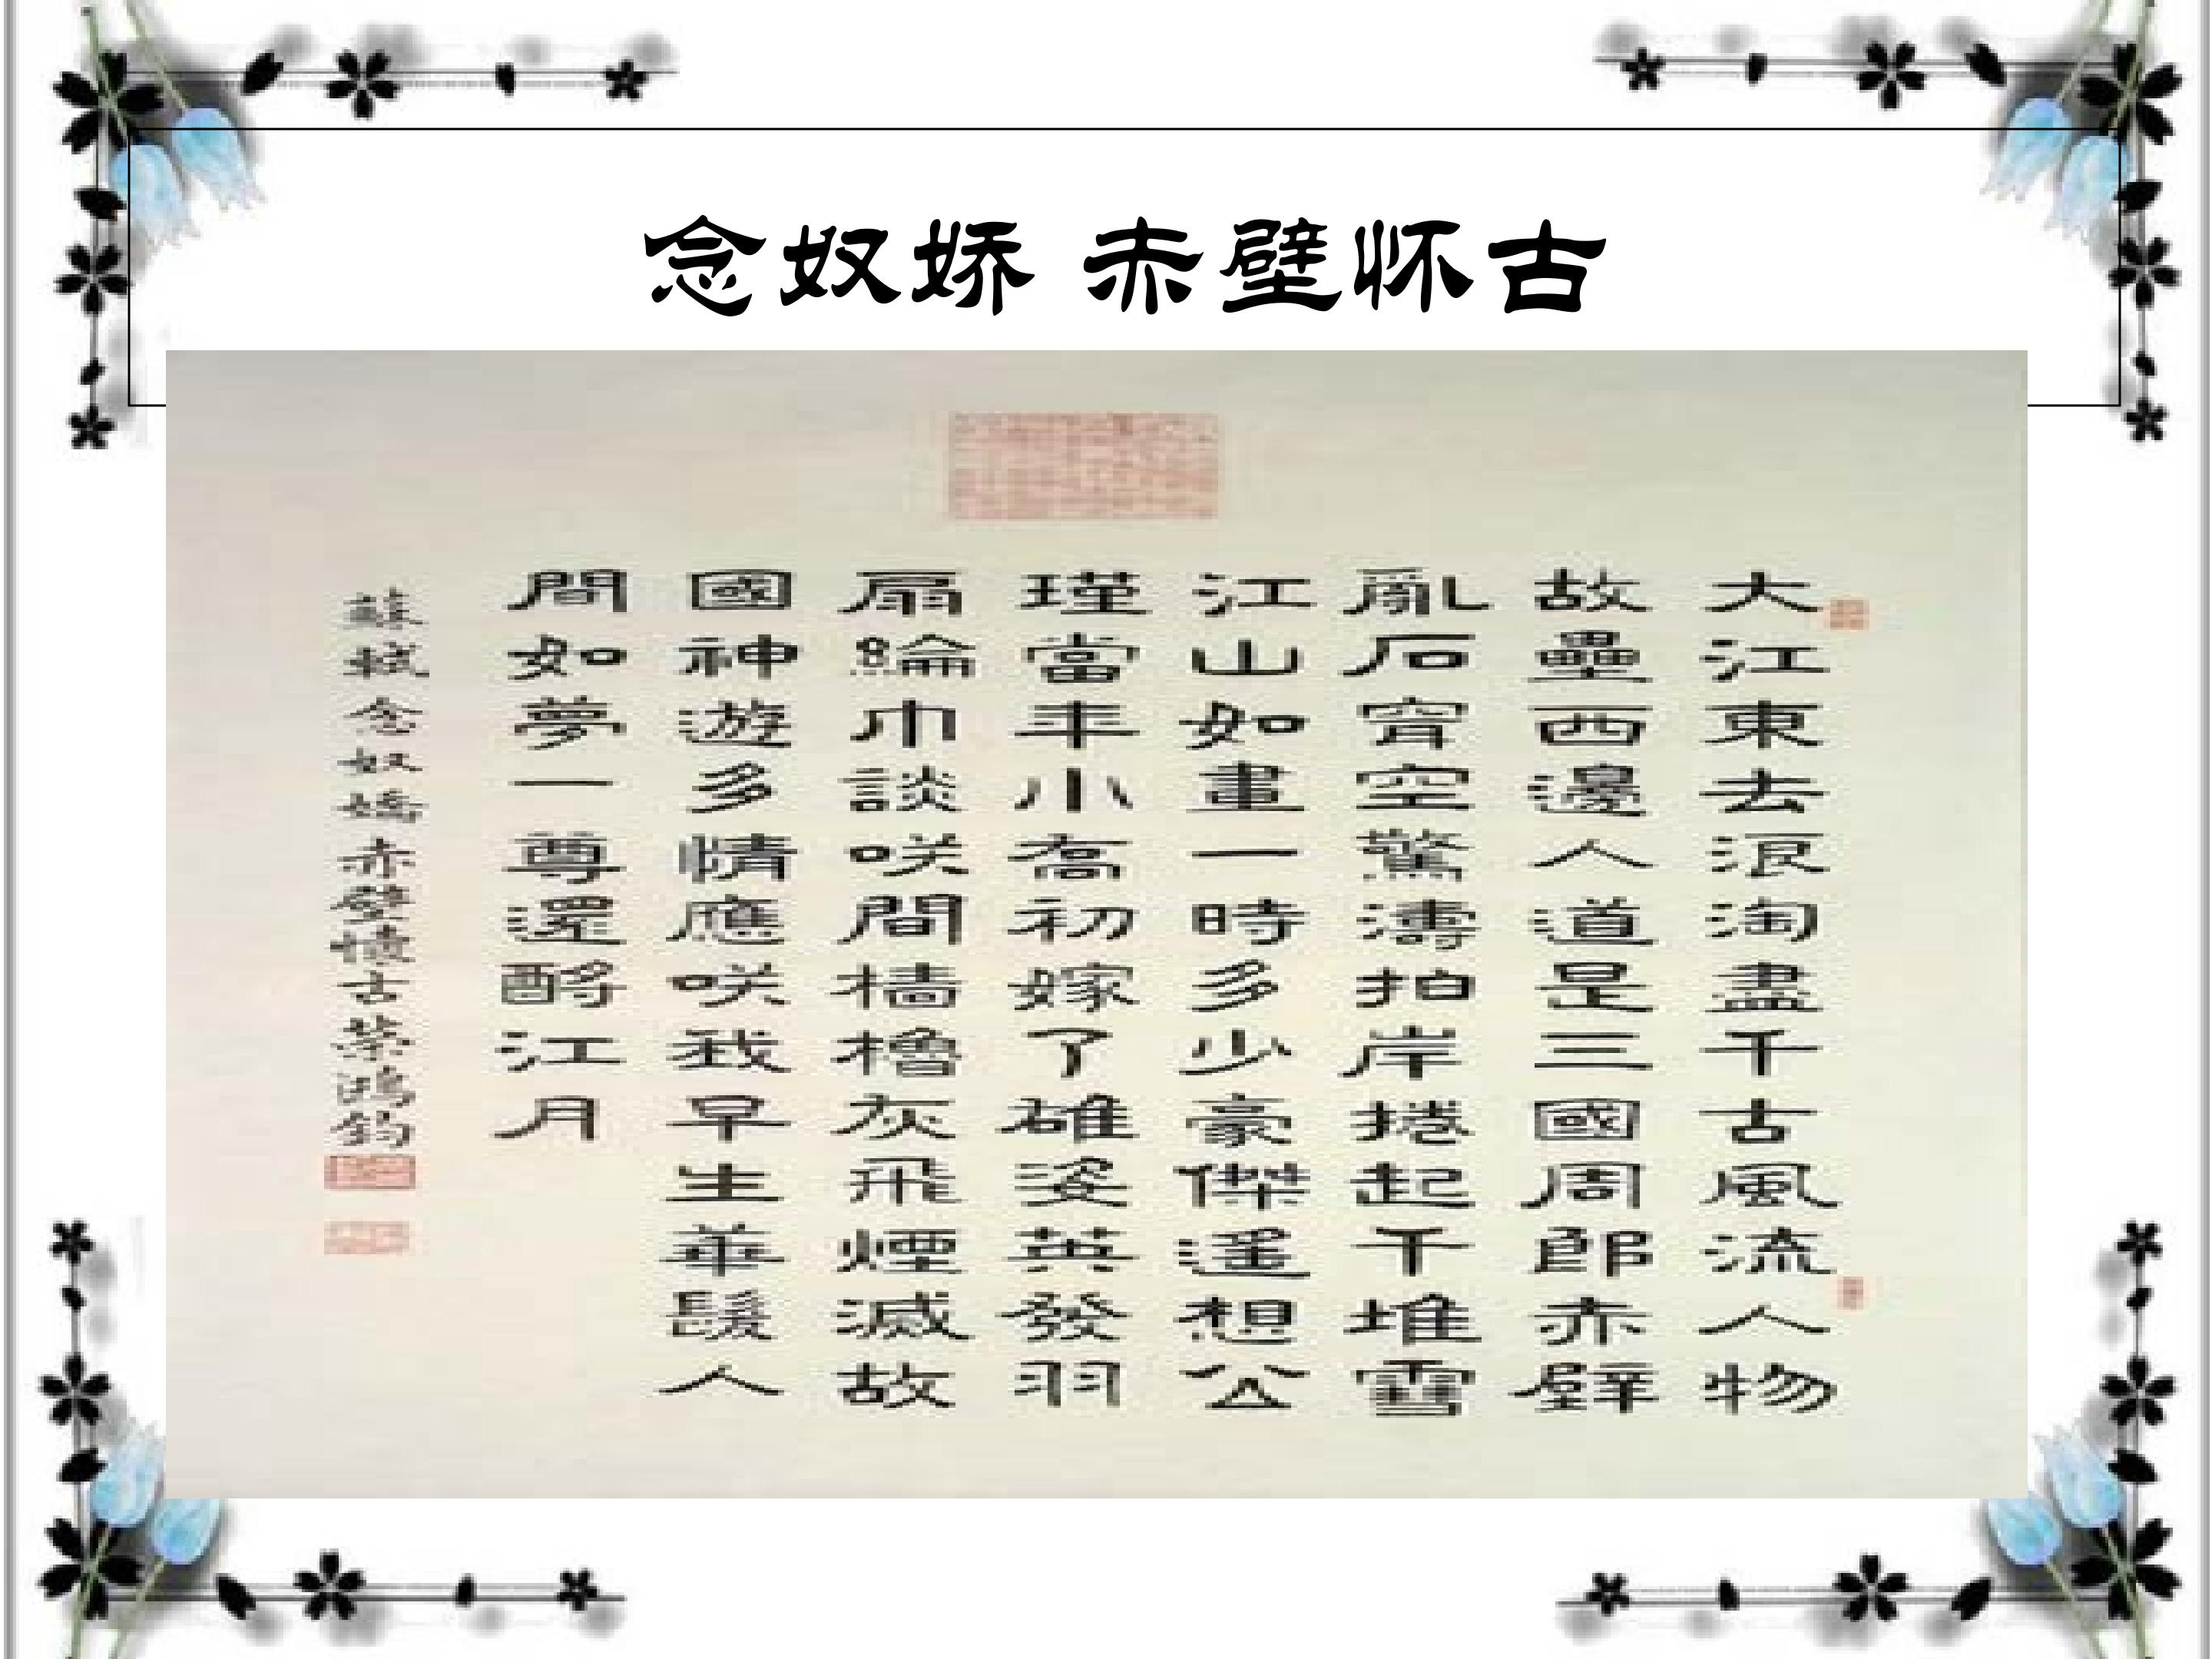 念奴娇 赤壁怀古
大江東去浪淘盡千古風流人物
故壘西邊人道是三國周郎赤壁
亂石穿空驚濤拍岸捲起千堆雪
江山如畫一時多少豪傑遙想公
瑾當年小喬初嫁了雄姿英發羽
扇綸巾談咲間檣櫓灰飛煙滅故
國神遊多情應咲我早生華髮人
間如夢一尊還酹江月
蘇軾念奴嬌赤壁懷古